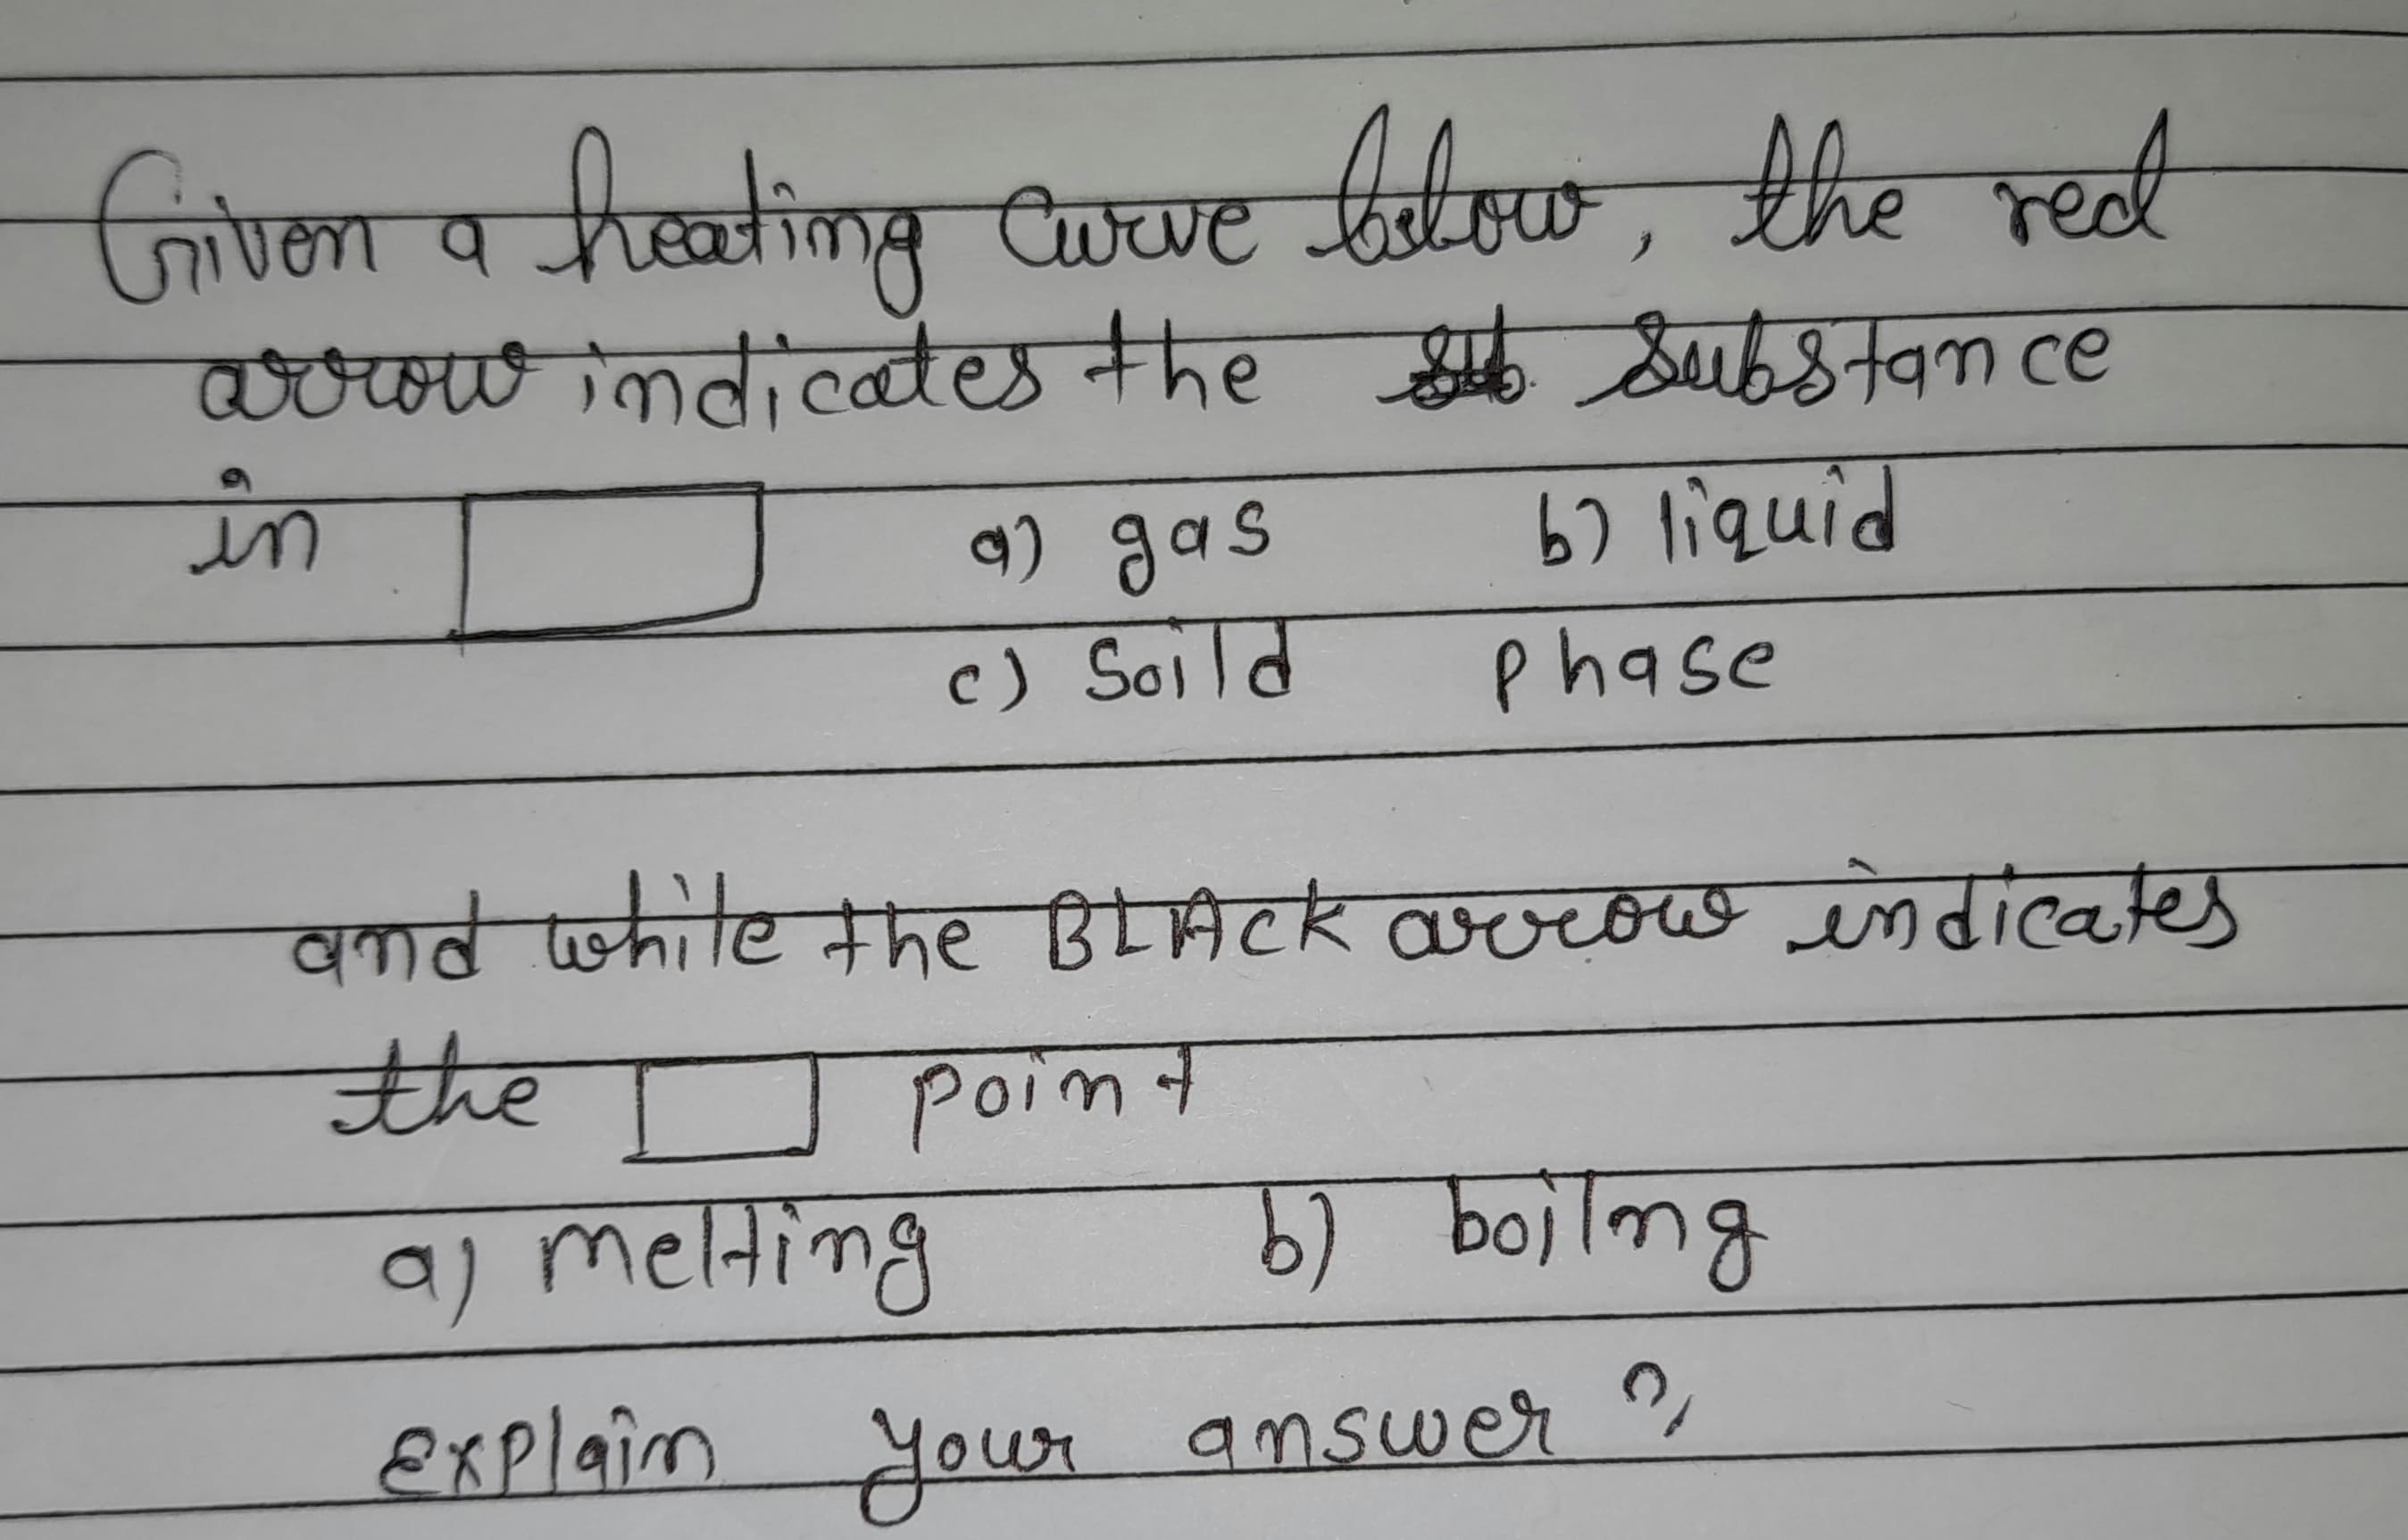 Given a heating curve below, the red
arrow indicates the substance
in a) gas b) liquid
c) Soild phase
and while the BLACK arrow indicates
the point
a) melting b) boilng
explain your answer?